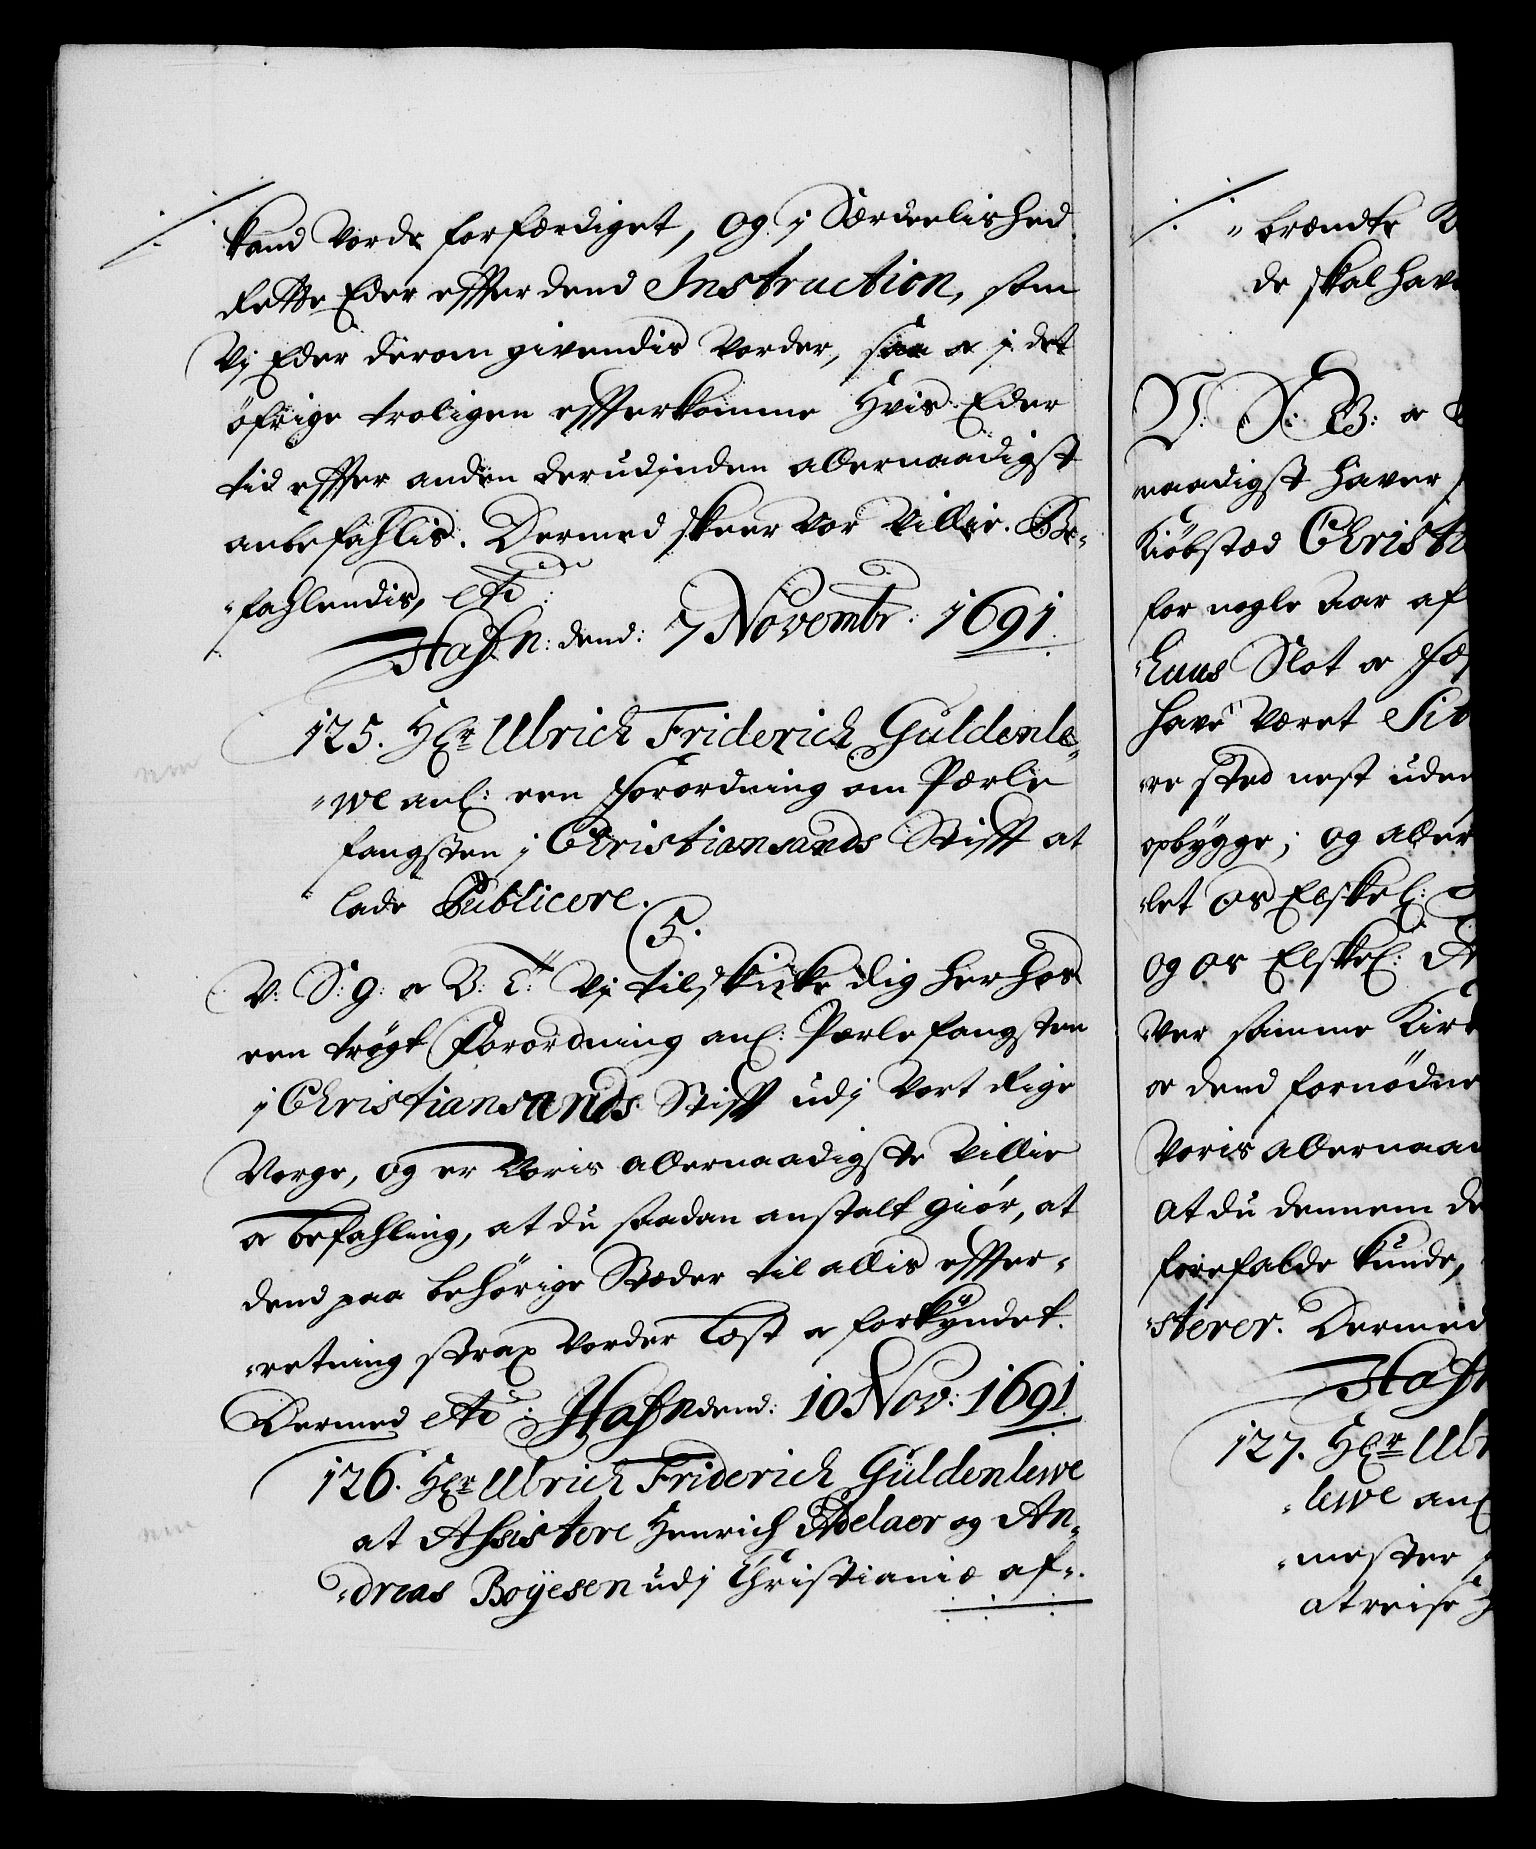 kand vorde forfærdiget, og j Særdeelished
Rette Eder effter dend Instruction, som
Vj Eder derom givendis vorder, saa og j det
öfrige troligen effterkomme Hvis Eder
tid effter anden derudjnden allernaadigst
anbefahlis. Dermed skeer Vor Villie. Be-
-fahlendis, etc:
Hafn: dend: 7 Novembr: 1691.
125. Hr Ulrich Friderich Guldenle-
-we anl: een Forordning om Pærle
fangsten j Christiansands Stifft at
lade Publicere.
5.
V: S: g: og B: T: Vj tilskicke dig her hos
een trögt Forordning anl: Pærlefangsten
j Christiansands Stifft udj Vort Rige
Norge, og er Voris allernaadigste Villie
og befahling, at du saadan anstalt giör, at
dend paa behörige Stæder til allis effter-
-retning strax vorder læst og forkÿndet.
Dermed etc: Hafn dend: 10 Nov: 1691
126. Hr Ulrich Friderich Güldenlewe
at Assistere Henrich Adelaer og An-
-dreas Boÿesen udj Christianiæ af-.
-brændte
de skal have
V. S: B: og
naadigst haver
Kiöbstad Christi
for nogle Aar af
-huus Slot og
have været Sit
-re sted nest uden
opbygge; og aller
-let os Elskel:
og os Elskel: A
ver samme Kirk
og dend fornödne
Voris allernaad
at du dennem de
forefalde kunde,
-sterer. Dermed
Hafn
127. Hr Ulr
-lewe anl
-mester
at reise